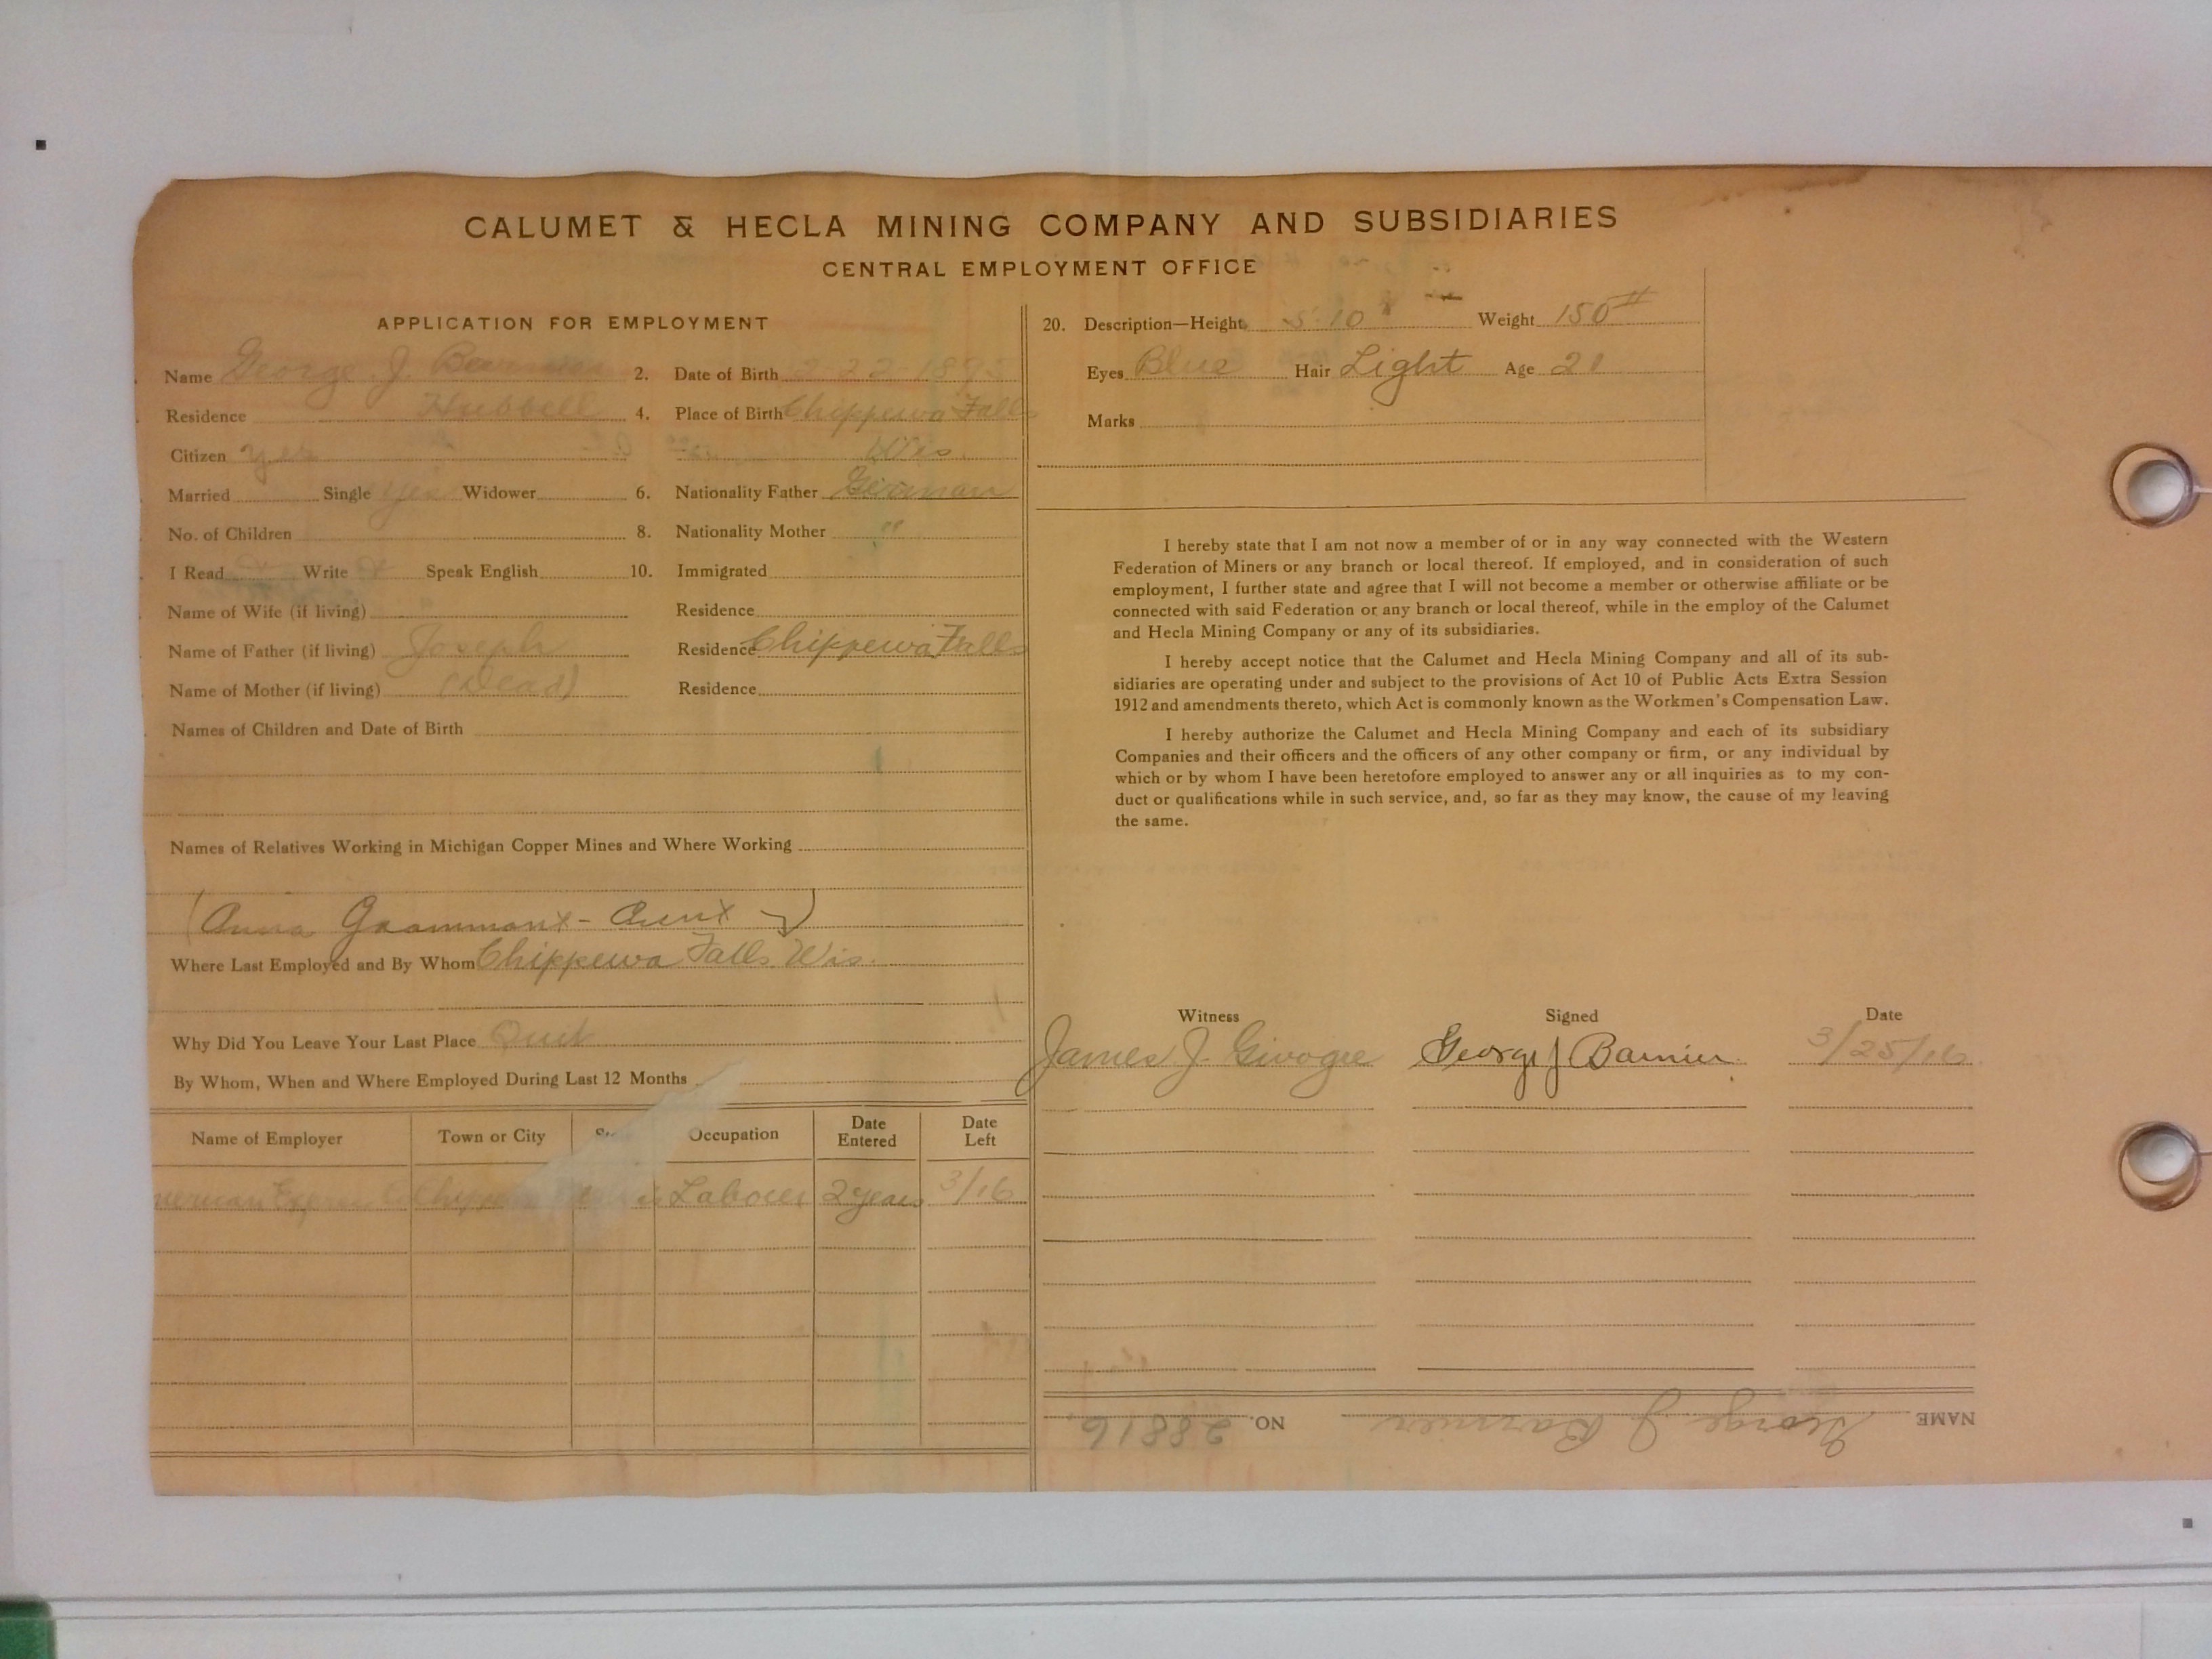 CALUMET & HECLA MINING COMPANY AND SUBSIDIARIES
CENTRAL EMPLOYMENT OFFICE
APPLICATION FOR EMPLOYMENT
Name George J. 2. Date of Birth 2 22 1895
Residence Hubbell 4. Place of Birth Chippewa Falls
Citizen Yes Wis.
Married Single Yes Widower 6. Nationality Father German
No. of Children 8. Nationality Mother "
I Read Write Speak English 10. Immigrated
Name of Wife (if living) Residence
Name of Father (if living) Joseph Residence Chippewa Falls
Name of Mother (if living) (Dead) Residence
Names of Children and Date of Birth
Names of Relatives Working in Michigan Copper Mines and Where Working
(Anna Grammont - Aunt)
Where Last Employed and By Whom Chippewa Falls Wis.
Why Did You Leave Your Last Place Quit
By Whom, When and Where Employed During Last 12 Months
Name of Employer Town or City Occupation Date Entered Date Left
Laborer 2 years 3/16
20. Description—Height 5' 10" Weight 150#
Eyes Blue Hair Light Age 21
Marks
I hereby state that I am not now a member of or in any way connected with the Western
Federation of Miners or any branch or local thereof. If employed, and in consideration of such
employment, I further state and agree that I will not become a member or otherwise affiliate or be
connected with said Federation or any branch or local thereof, while in the employ of the Calumet
and Hecla Mining Company or any of its subsidiaries.
I hereby accept notice that the Calumet and Hecla Mining Company and all of its sub-
sidiaries are operating under and subject to the provisions of Act 10 of Public Acts Extra Session
1912 and amendments thereto, which Act is commonly known as the Workmen's Compensation Law.
I hereby authorize the Calumet and Hecla Mining Company and each of its subsidiary
Companies and their officers and the officers of any other company or firm, or any individual by
which or by whom I have been heretofore employed to answer any or all inquiries as to my con-
duct or qualifications while in such service, and, so far as they may know, the cause of my leaving
the same.
Witness Signed Date
James J. George J Barnier 3/25/16
NAME George J Barnier NO. 28816